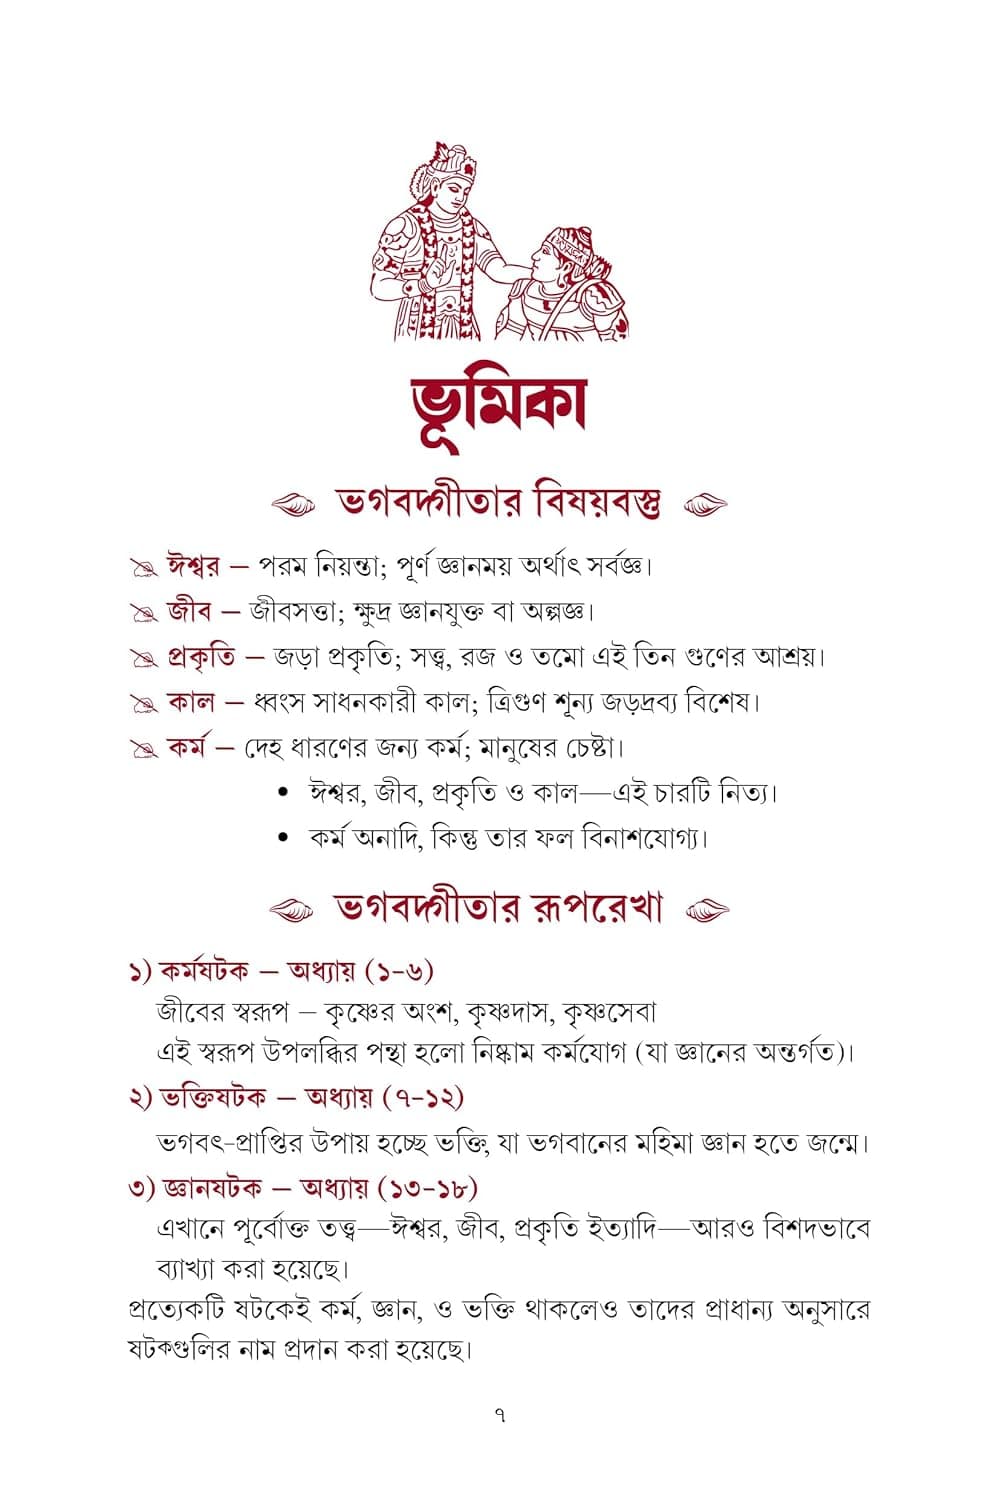 ভূমিকা
ভগবদ্গীতার বিষয়বস্তু
ঈশ্বর – পরম নিয়ন্তা; পূর্ণ জ্ঞানময় অর্থাৎ সর্বজ্ঞ।
জীব – জীবসত্তা; ক্ষুদ্র জ্ঞানযুক্ত বা অল্পজ্ঞ।
প্রকৃতি – জড়া প্রকৃতি; সত্ত্ব, রজ ও তমো এই তিন গুণের আশ্রয়।
কাল – ধ্বংস সাধনকারী কাল; ত্রিগুণ শূন্য জড়দ্রব্য বিশেষ।
কর্ম – দেহ ধারণের জন্য কর্ম; মানুষের চেষ্টা।
• ঈশ্বর, জীব, প্রকৃতি ও কাল—এই চারটি নিত্য।
• কর্ম অনাদি, কিন্তু তার ফল বিনাশযোগ্য।
ভগবদ্গীতার রূপরেখা
১) কর্মষটক – অধ্যায় (১-৬)
জীবের স্বরূপ – কৃষ্ণের অংশ, কৃষ্ণদাস, কৃষ্ণসেবা
এই স্বরূপ উপলব্ধির পন্থা হলো নিষ্কাম কর্মযোগ (যা জ্ঞানের অন্তর্গত)।
২) ভক্তিষটক – অধ্যায় (৭-১২)
ভগবৎ-প্রাপ্তির উপায় হচ্ছে ভক্তি, যা ভগবানের মহিমা জ্ঞান হতে জন্মে।
৩) জ্ঞানষটক – অধ্যায় (১৩-১৮)
এখানে পূর্বোক্ত তত্ত্ব—ঈশ্বর, জীব, প্রকৃতি ইত্যাদি—আরও বিশদভাবে
ব্যাখ্যা করা হয়েছে।
প্রত্যেকটি ষটকেই কর্ম, জ্ঞান, ও ভক্তি থাকলেও তাদের প্রাধান্য অনুসারে
ষটকগুলির নাম প্রদান করা হয়েছে।
৭